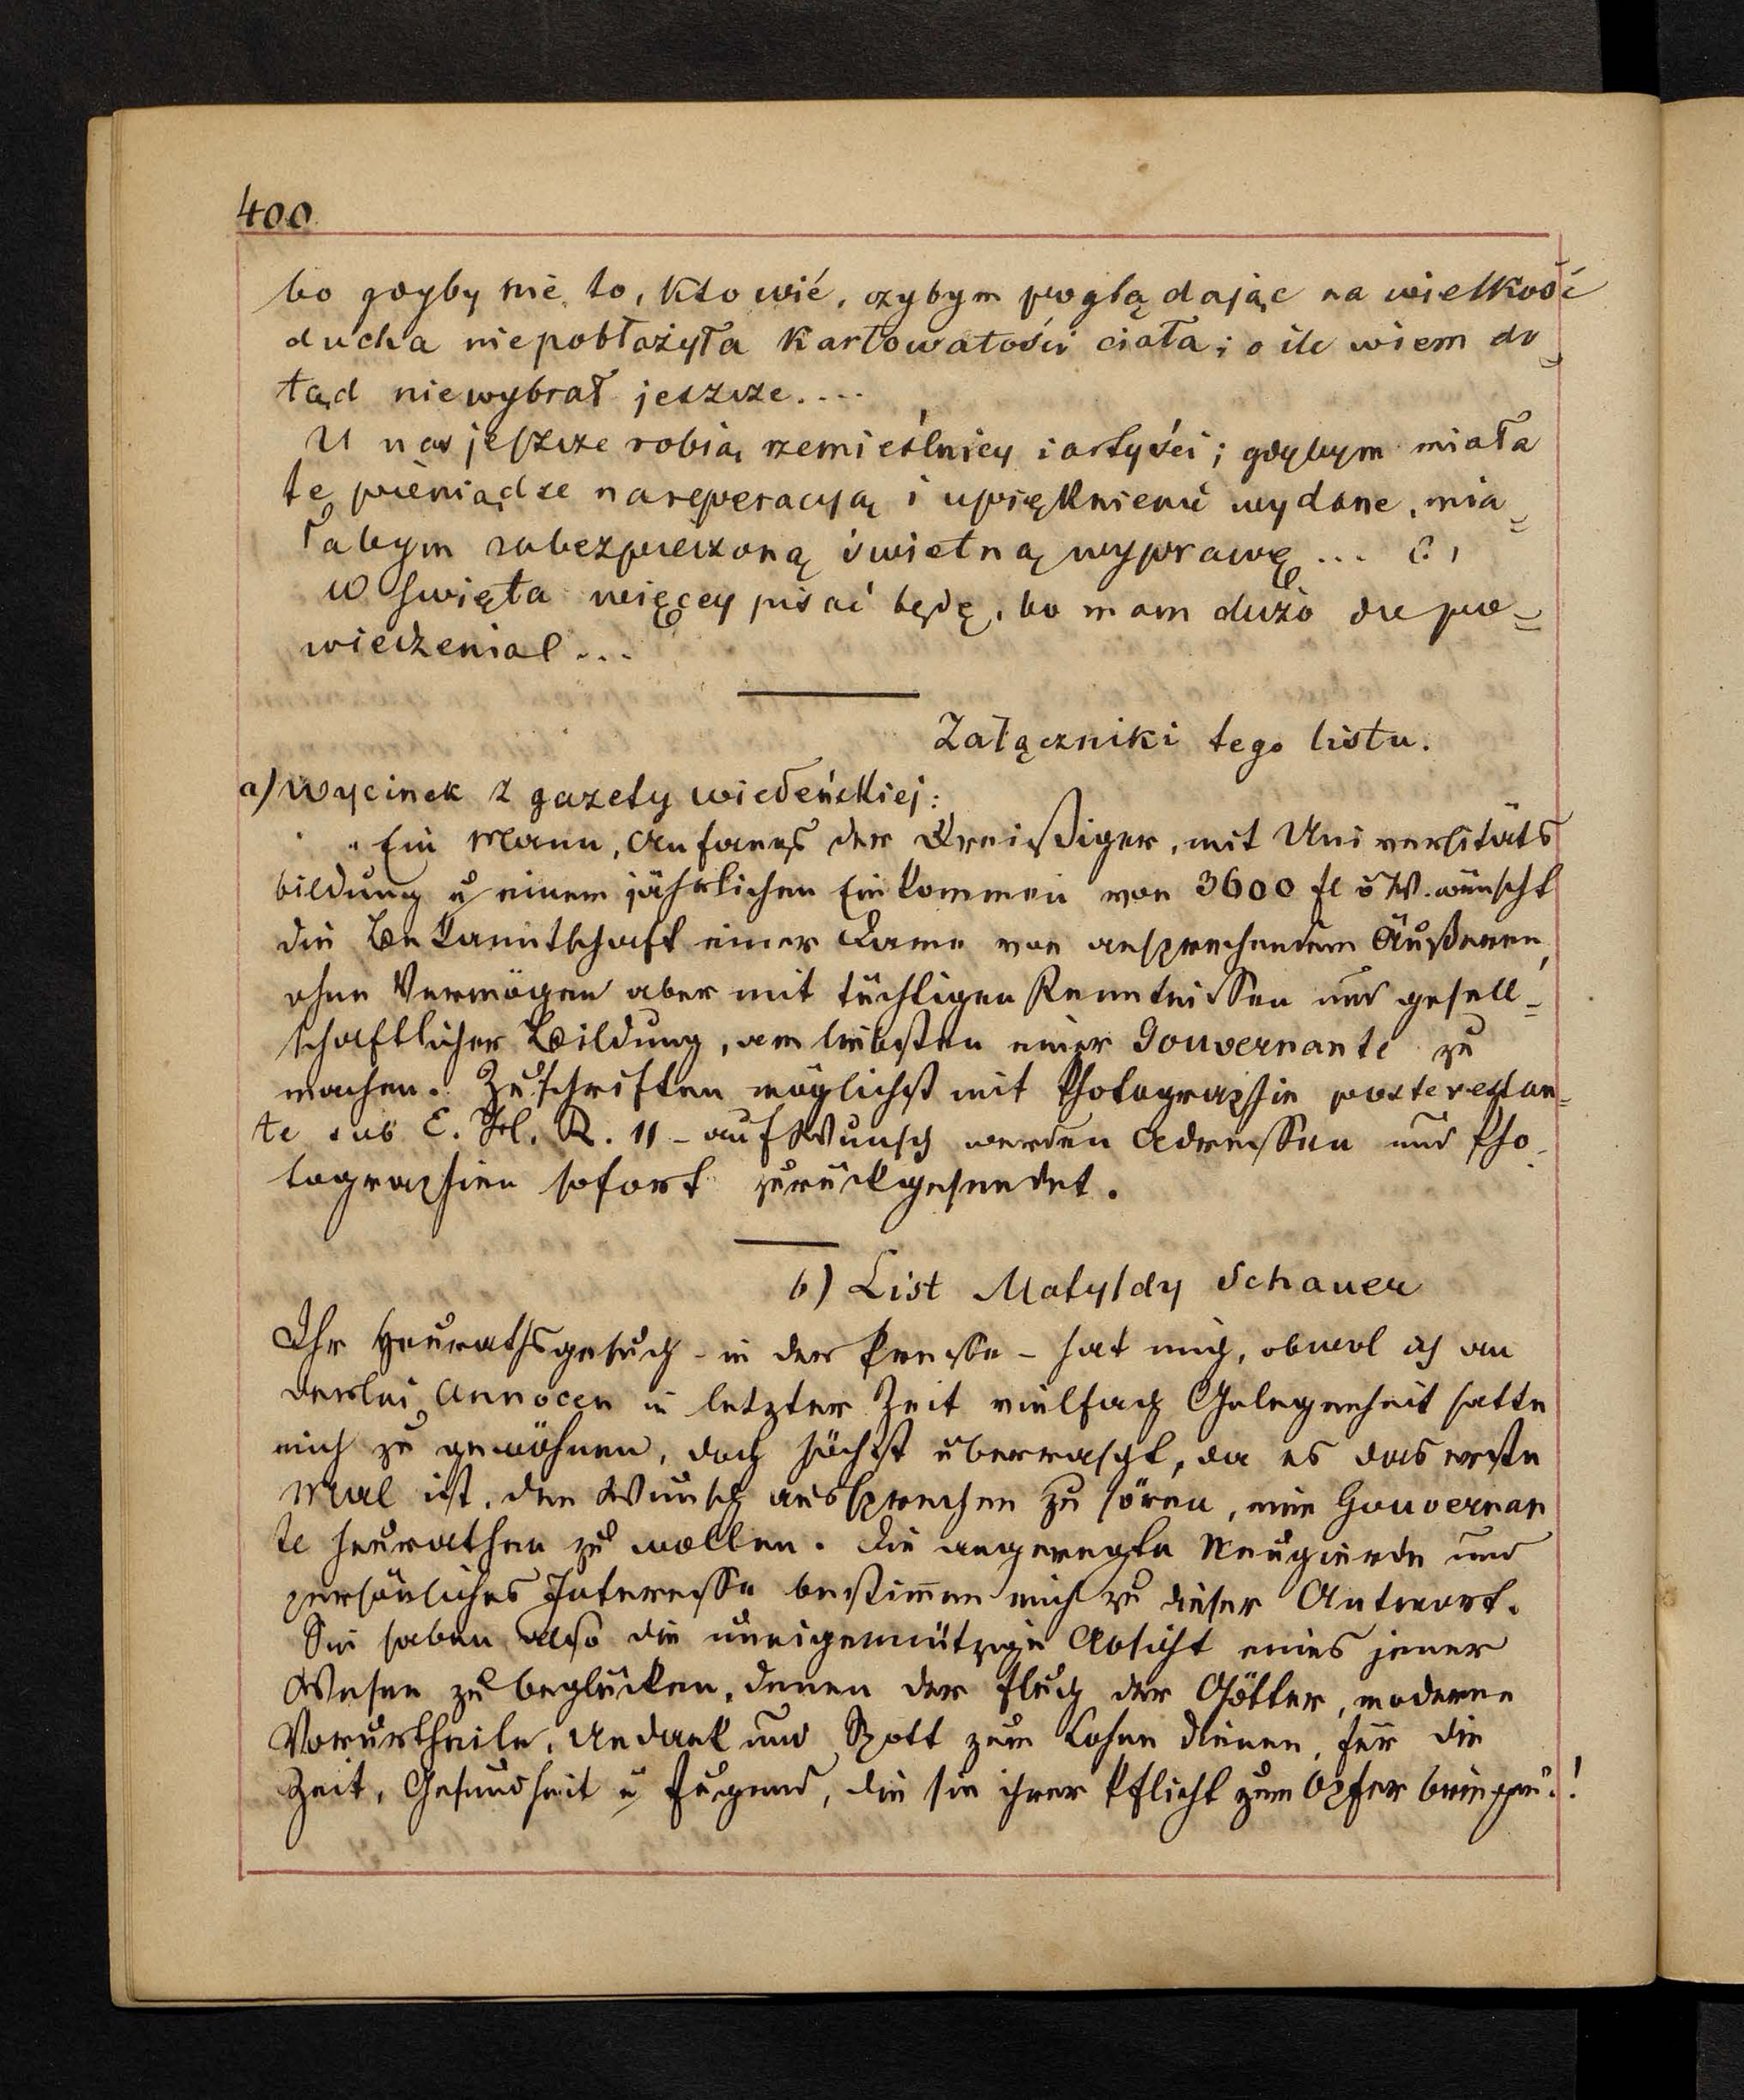 400
bo gdyby nie to, kto wié, czybym poglądając na wielkość
ducha niepobłażyła karłowatości ciała; o ile wiem do=
tąd niewybrał jeszcze....
U nas jeszcze robią rzemieślnicy i artyści; gdybym miała
te pieniądze na reperacyją i upięknienie wydane, mia=
łabym zabezpieczoną świetną wyprawę...
W święta więcej pisać będę, bo mam dużo do po=
wiedzenia...
Załączniki tego listu.
a) Wycinek z gazety wiedeńskiej:
"Ein Mann, Anfangs der Dreißiger, mit Universitäts
bildung u einem jährlichen Einkommen von 3600 fl ö W. wünscht
die Bekanntschaft einer Dame von ansprechendem Äußeren,
ohne Vermögen aber mit tüchtigen Kenntnissen und gesell=
schaftlicher Bildung, am liebsten einer Gouvernante zu
machen. Zuschriften möglichst mit Photographie poste restan=
te sub E. H. R. 11 – auf Wunsch werden Adressen und Pho-
tographien sofort zurückgesendet.
b) List Matyldy Schauer
Ihr Heurathsgesuch – in der Presse – hat mich, obwol ich an
derlei Annocen in letzter Zeit vielfach Gelegenheit hatte
mich zu gewöhnen, doch höchst überrascht, da es das erste
Mal ist, den Wunsch aussprechen zu hören, eine Gouvernan
te heurathen zu wollen. Die angeregte Neugierde und
persönliches Interesse bestim̄en mich zu dieser Antwort.
Sie haben also die uneigennützige Absicht eines jener
Wesen zu beglücken, denen der Fluch der Götter, moderne
Vorurtheile, Undank und Spott zum Lohne dienen, für die
Zeit, Gesundheit u Jugend, die sie ihrer Pflicht zum Opfer bringen.!